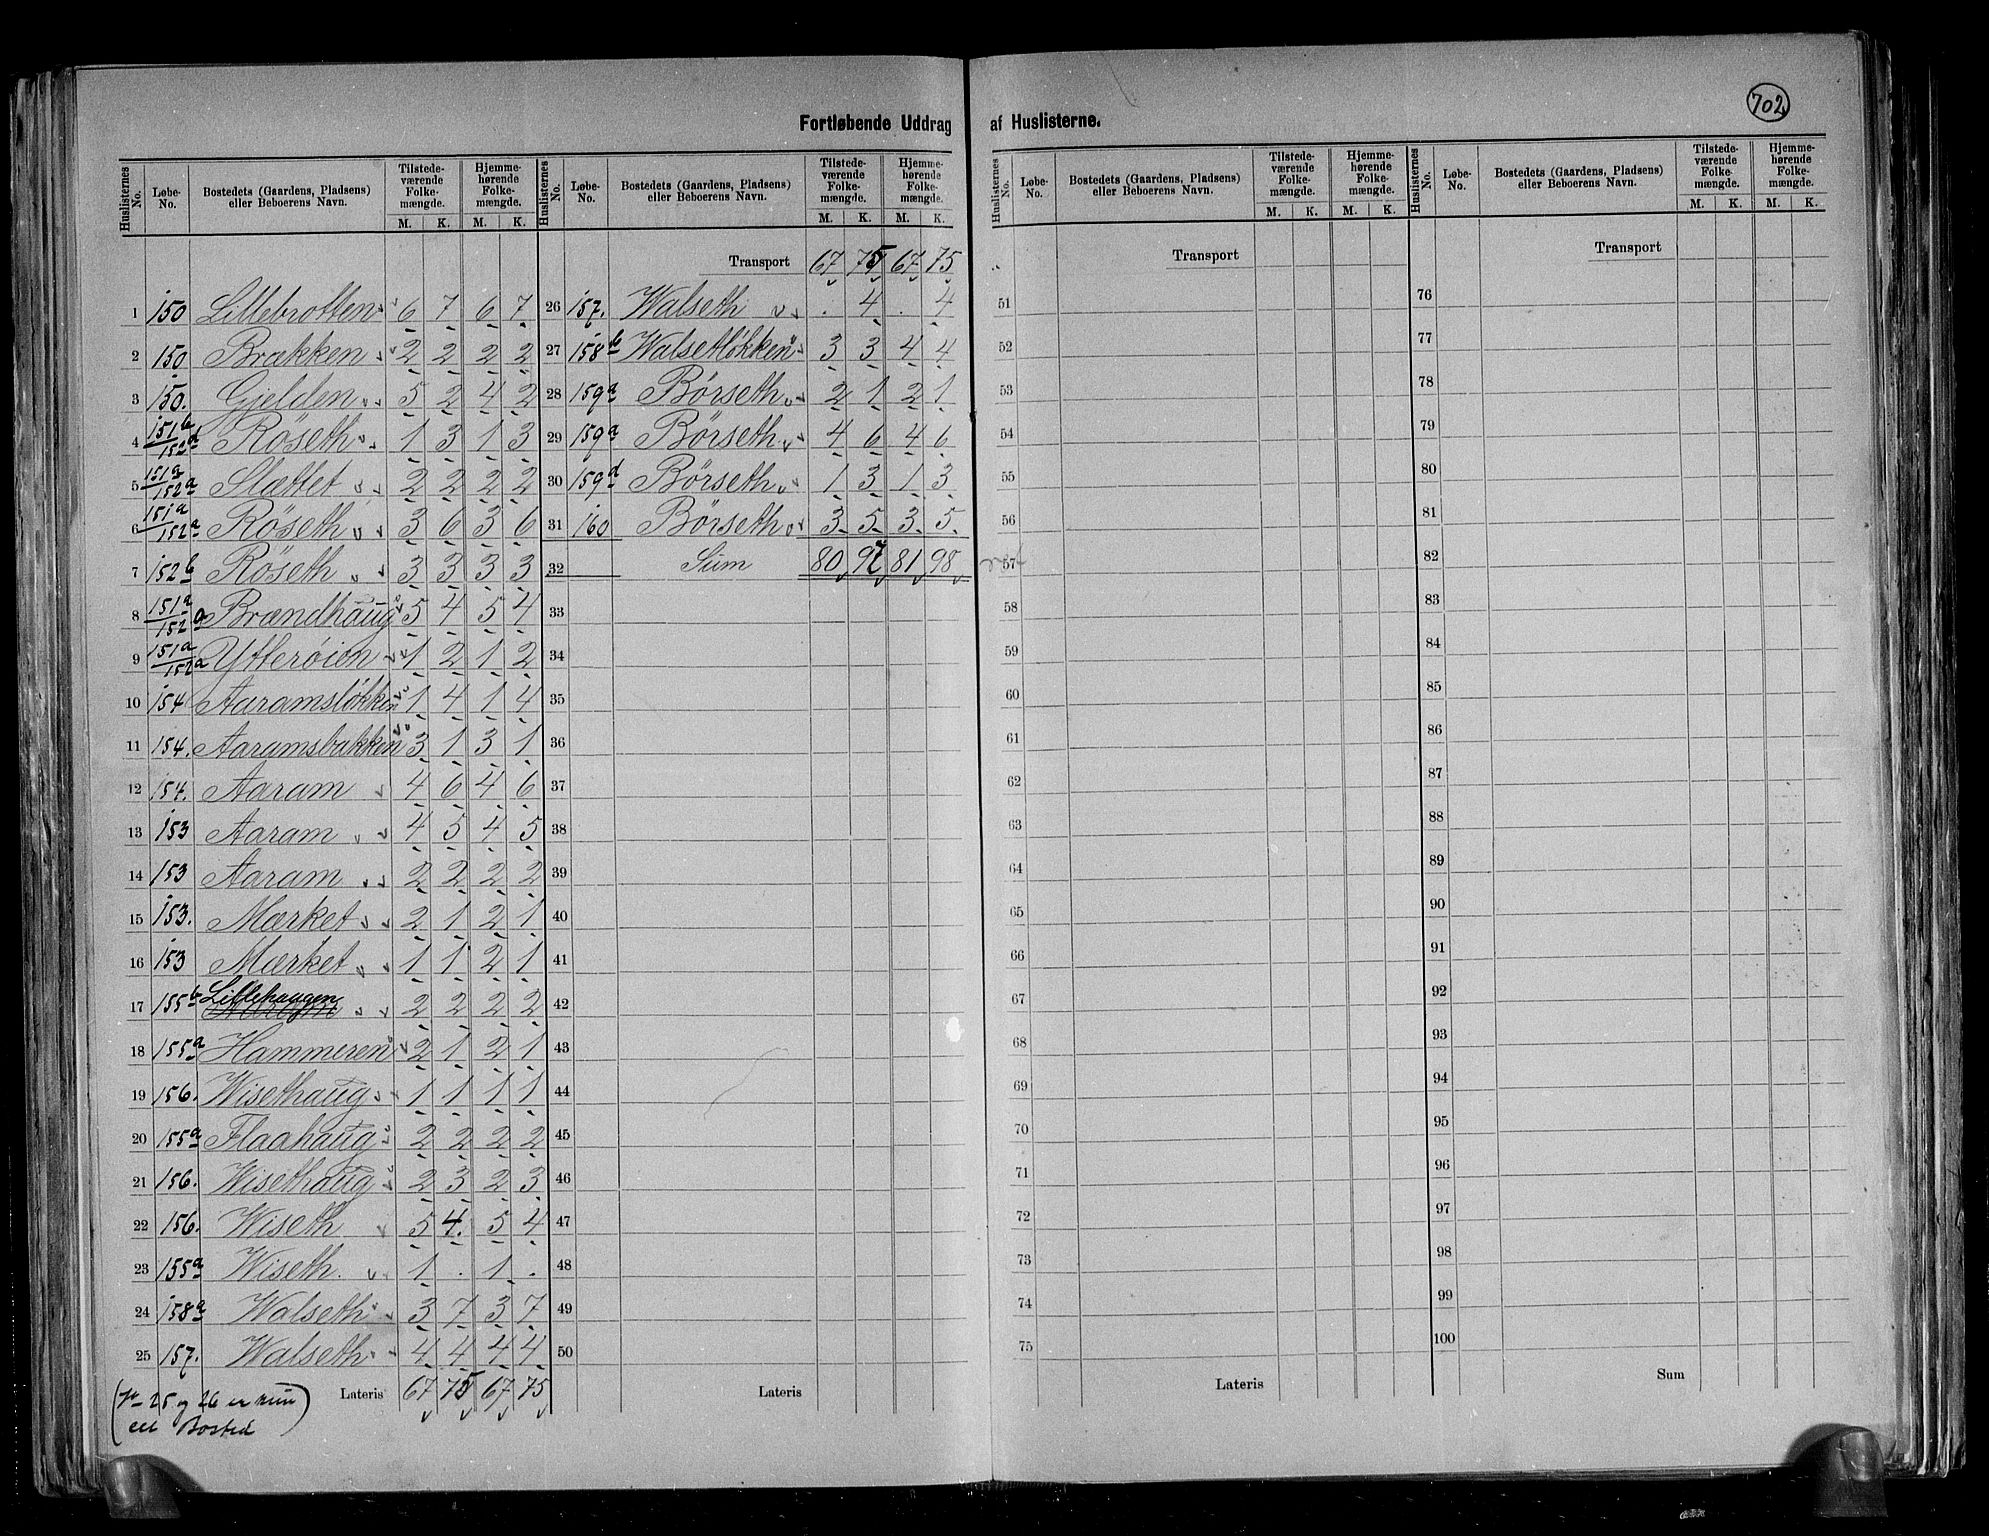 702
Fortløbende Uddrag af Huslisterne.
Huslisternes No. | Løbe-No. | Bostedets (Gaardens, Pladsens) eller Beboerens Navn. | Tilstedeværende Folkemængde. M. K. | Hjemmehørende Folkemængde. M. K.
1 150 Lillebrotten 6 7 6 7
2 150 Brækken 2 2 2 2
3 150. Gjelden 5 2 4 2
4 151b/152d Røseth 1 3 1 3
5 151a/152a Slættet 2 2 2 2
6 151a/152a Røseth 3 6 3 6
7 152b Røseth 3 3 3 3
8 151a/152a Brændhaug 5 4 5 4
9 151a/152a Ytterøien 1 2 1 2
10 154 Aaramsløkken 1 4 1 4
11 154. Aaramsbakken 3 1 3 1
12 154. Aaram 4 6 4 6
13 153 Aaram 4 5 4 5
14 153 Aaram 2 2 2 2
15 153. Mærket 2 1 2 1
16 153 Mærket 1 1 2 1
17 155b Lillehaugen 2 2 2 2
18 155a Hammeren 2 1 2 1
19 156. Wisethaug 1 1 1 1
20 155a Flaahaug 2 2 2 2
21 156. Wisethaug 2 3 2 3
22 156. Wiseth 5 4. 5 4
23 155a Wiseth. 1 . 1 .
24 158a Walseth 3 7 3 7
25 157. Walseth 4 4 4 4
Lateris 67 75 67 75
(No 25 og 26 er kun
ett Bosted)
Huslisternes No. | Løbe-No. | Bostedets (Gaardens, Pladsens) eller Beboerens Navn. | Tilstedeværende Folkemængde. M. K. | Hjemmehørende Folkemængde. M. K.
Transport 67 75 67 75
26 157. Walseth . 4 . 4
27 158b Walsetløkken 3 3 4 4
28 159a Børseth 2 1 2 1
29 159a Børseth 4 6 4 6
30 159d Børseth 1 3 1 3
31 160 Børseth 3 5 3 5
32 Sum 80 97 81 98
33
34
35
36
37
38
39
40
41
42
43
44
45
46
47
48
49
50
Lateris
Huslisternes No. | Løbe-No. | Bostedets (Gaardens, Pladsens) eller Beboerens Navn. | Tilstedeværende Folkemængde. M. K. | Hjemmehørende Folkemængde. M. K.
Transport
51
52
53
54
55
56
57
58
59
60
61
62
63
64
65
66
67
68
69
70
71
72
73
74
75
Lateris
Huslisternes No. | Løbe-No. | Bostedets (Gaardens, Pladsens) eller Beboerens Navn. | Tilstedeværende Folkemængde. M. K. | Hjemmehørende Folkemængde. M. K.
Transport
76
77
78
79
80
81
82
83
84
85
86
87
88
89
90
91
92
93
94
95
96
97
98
99
100
Sum